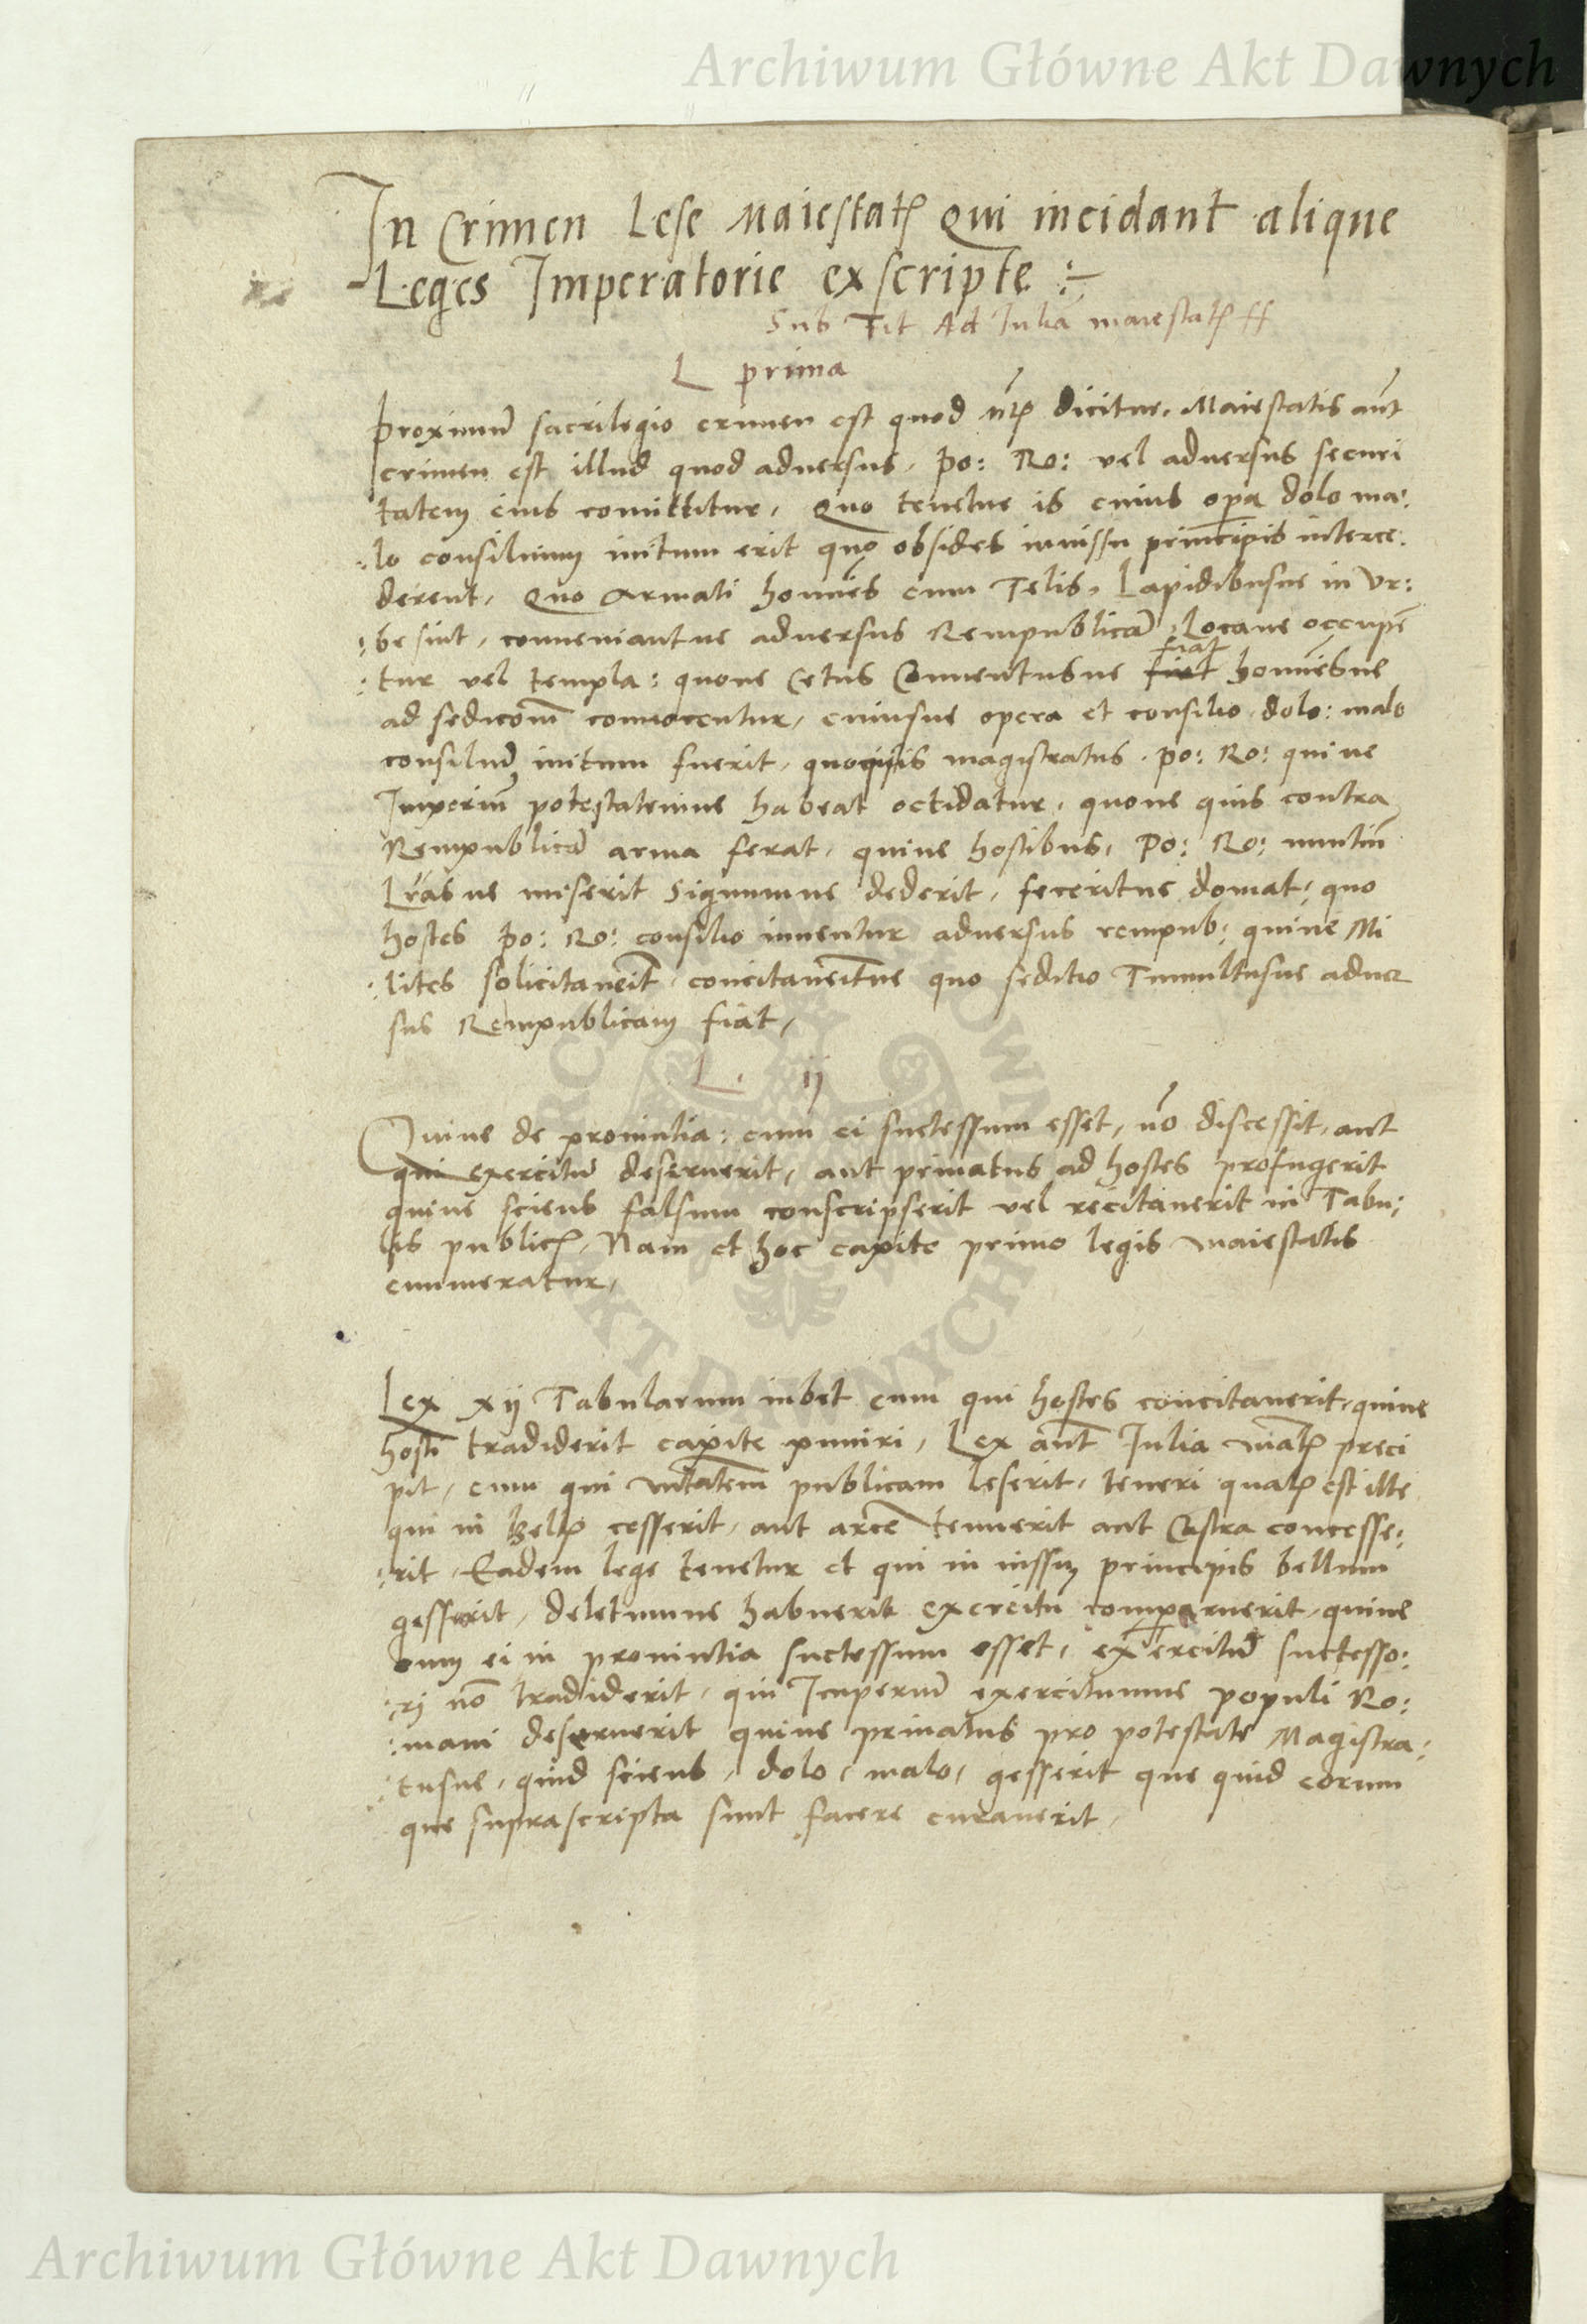 Archiwum Główne Akt Dawnych
In Crimen Lese Maiestatꝭ Qui incidant alique
Leges Imperatorie exscripte
Sub Tit Ad Iuliā maiestatꝭ ff
L prima
Proximū sacrilegio crimen est quod dicitur. Maiestatis aūt
crimen est illud quod adversus. Po: Ro: vel adversus securi
tatem eius comittitur, Quo tenetur is cuius opa dolo ma:
:lo consilium initum erit quo obsides iniussu principis interce:
derent, Quo Armati homīes cum Telis, Lapidibusue in Ur:
:be sint, conveniantue adversus Rempublicā, Locaue occupē
:tur vel templa: quoue Cetus Conventusue fiat homīesue
ad sedicōm convocentur, cuiusue opera et consilio dolo: malo
consiliū initum fuerit, quoquis magistratus. Po: Ro: quiue
Imperiū potestatemue habeat occidatur, quoue quis contra
Rempublicā arma ferat, quiue hostibus, Po: Ro: nuntiū
Lrāsue miserit Signumue dederit, feceritue domat, quo
hostes Po: Ro: consilio iuuentur adversus rempub: quiue Mi
:lites solicitaverit, concitaveritue quo seditio Tumultusue adver
sus Rempublicam fiat,
L. ij
Quiue de provintia: cum ei successum esset, nō discessit, aut
qui exercitū deseruerit, aut privatus ad hostes profugerit
quiue sciens falsum conscripserit vel recitaverit in Tabu:
lis publicꝭ, Nam et hoc capite primo legis maiestatis
enumeratur,
Lex xij Tabularum iubet eum qui hostes concitaverit, quiue
hosti tradiderit capite puniri, Lex aūt Iulia matꝭ preci
pit, eum qui publicam leserit, teneri qualꝭ est ille
qui in Bellꝭ cesserit, aut arcē tenuerit aut Castra concesse:
:rit, Eadem lege tenetur et qui in iussu principis bellum
gesserit, deletumue habuerit exercitū comparuerit, quiue
cum ei in provintia successum esset, exercitū successo:
:rj nō tradiderit, qui Imperiū exercitumue populi Ro:
:mani deseruerit quiue privatus pro potestate Magistra:
:tusue, quid sciens, dolo, malo, gesserit que quid eorum
que suprascripta sunt facere curaverit,
Archiwum Główne Akt Dawnych